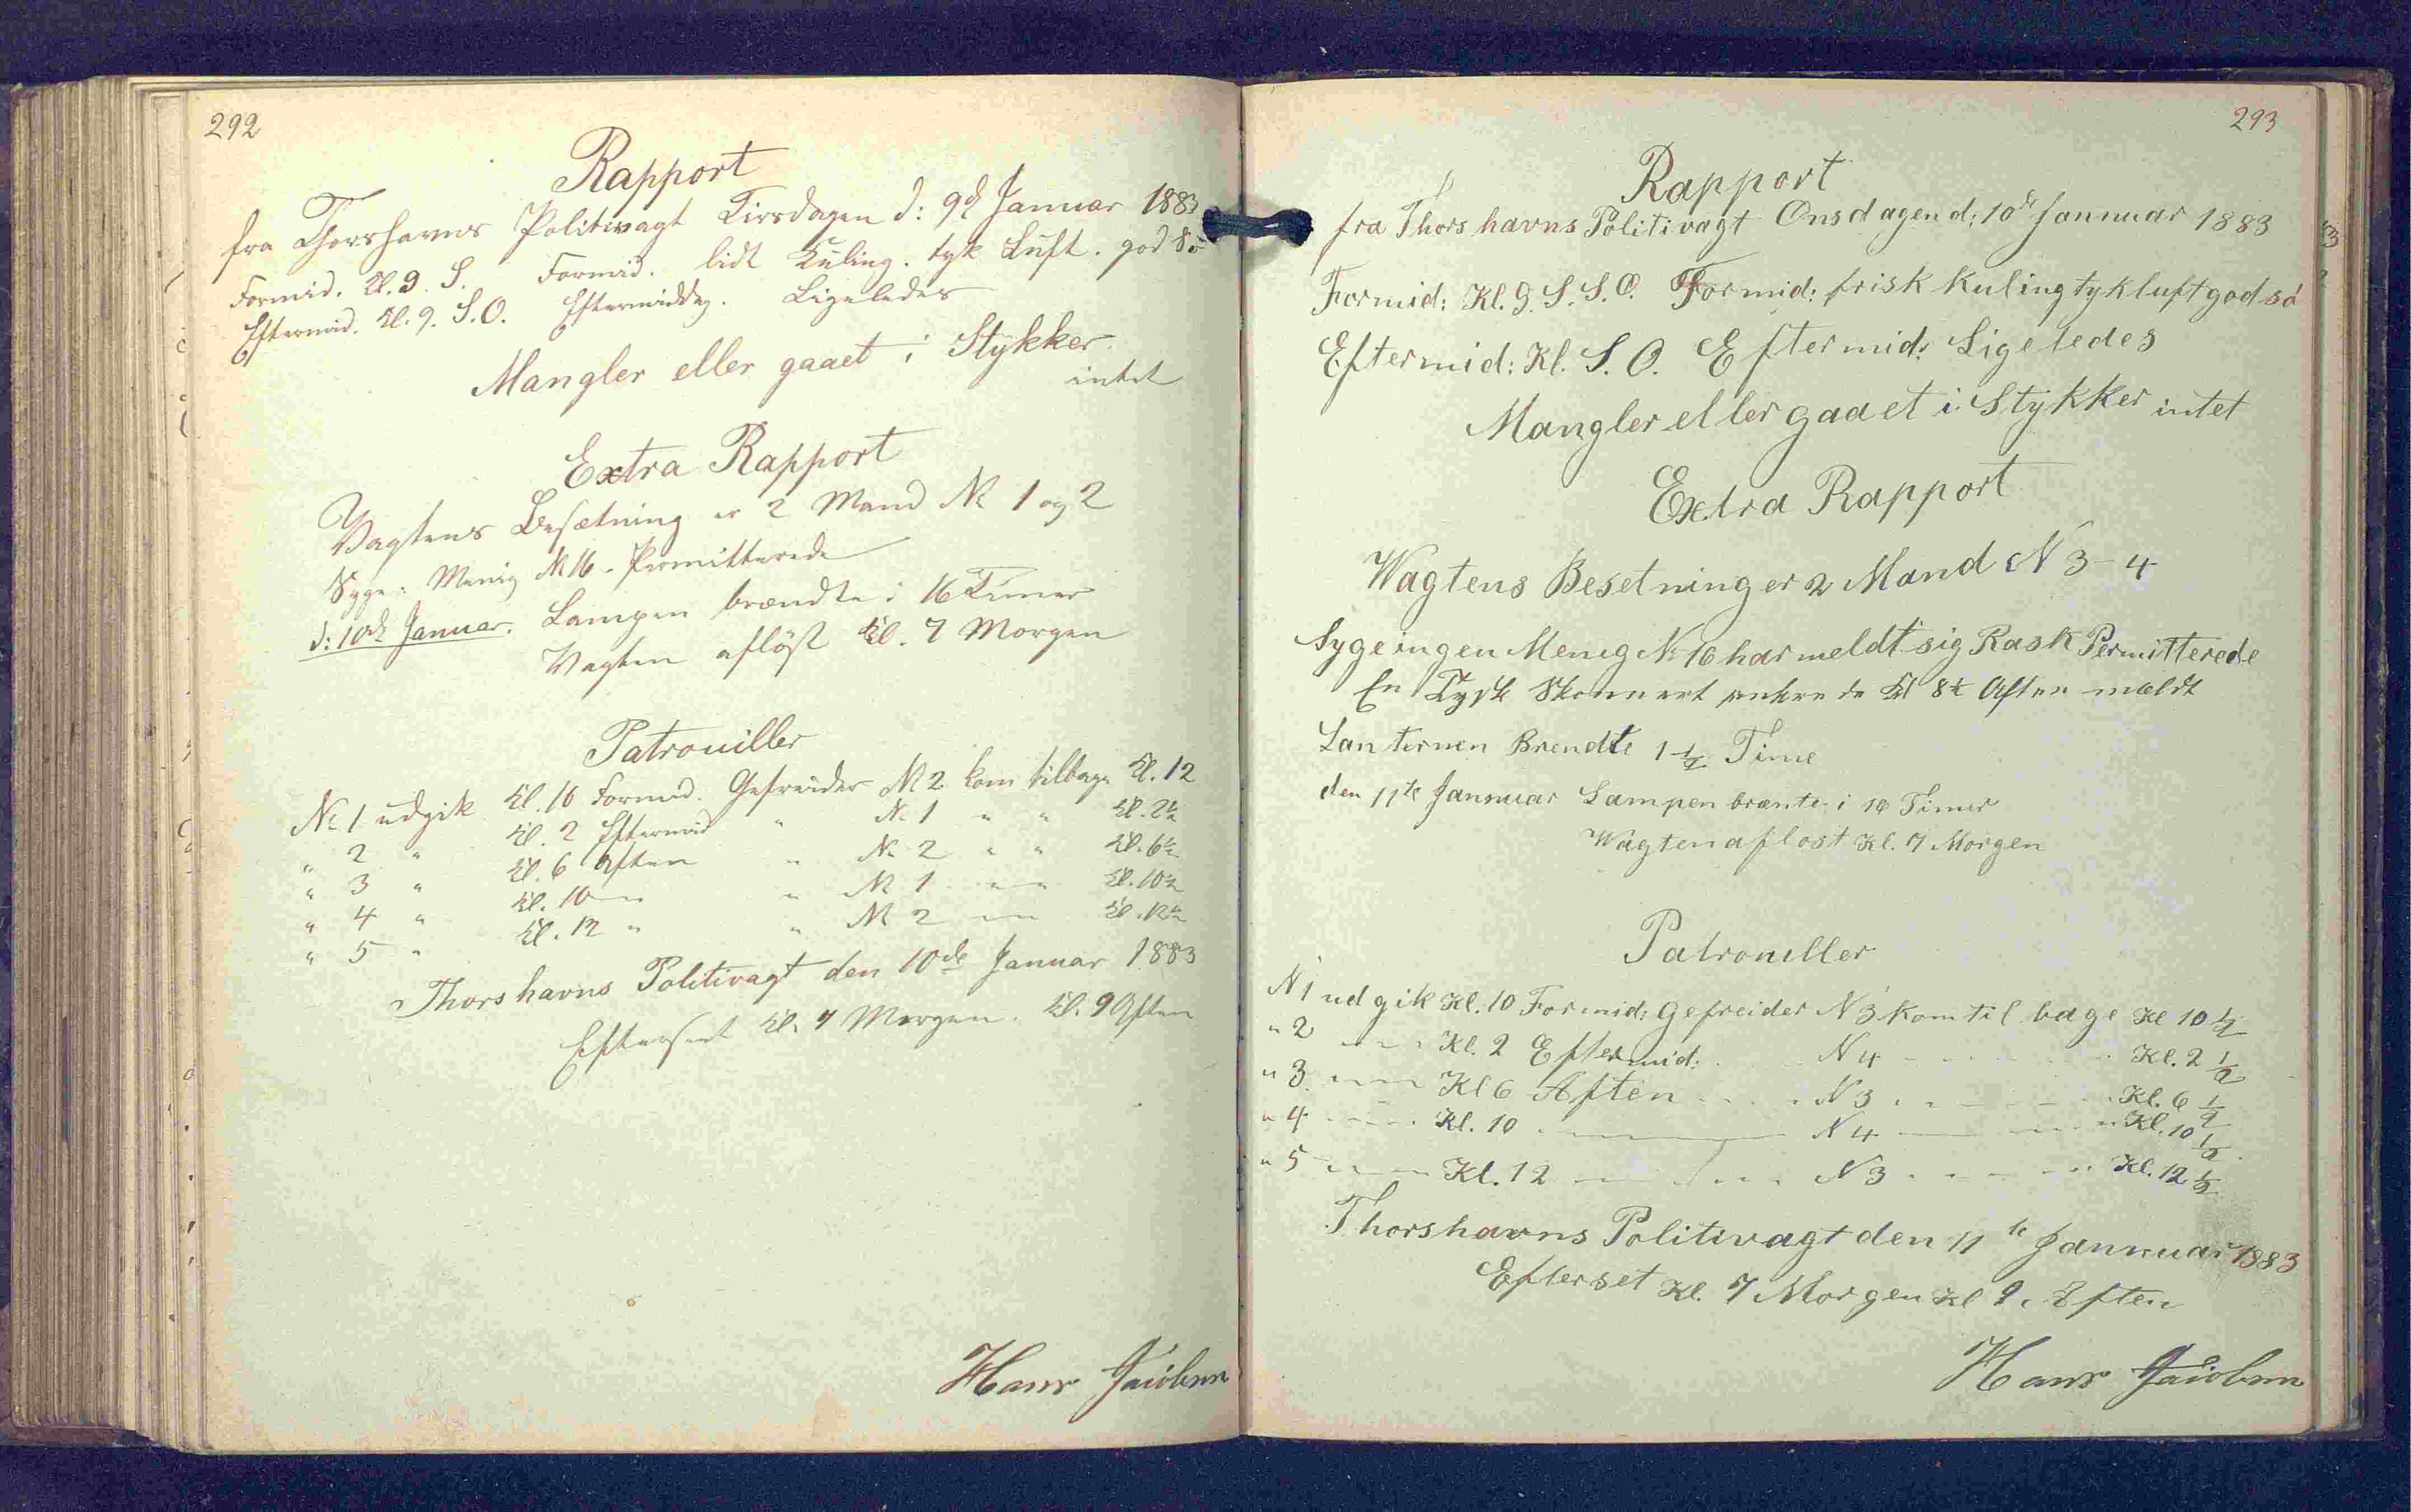 292
Rapport
fra Thorshavns Politivagt Tirsdagen d: 9de Januar 1883
Formid. Kl. 9. S. Formid. lidt Kuling. tyk Luft. god Sö
Eftermid. Kl. 9. S.O. Eftermiddag. Ligeledes
Mangler eller gaaet i Stykker.
intet
Extra Rapport
Vagtens Besætning er 2 Mand No 1 og 2
Syge: Menig No 16. Permitterede
d: 10de Januar. Lampen brændte i 16 Timer
Vagten aflöst Kl. 7 Morgen
Patrouiller
No 1 udgik Kl. 10 Formid. Gefreider No 2 kom tilbage Kl. 12
" 2 " Kl. 2 Eftermid " No 1 " " Kl. 2½
" 3 " Kl. 6 Aften " No 2 " " Kl. 6½
" 4 " Kl. 10 " " No 1 " " Kl. 10½
" 5 " Kl. 12 " " No 2 " " Kl. 12½
Thorshavns Politivagt den 10de Januar 1883
Efterset Kl. 7 Morgen. Kl. 9 Aften
Hans Jacobsen
293
Rapport
fra Thorshavns Politivagt Onsdagen d: 10de Jannuar 1883
Formid: Kl. 9. S. S. O. Formid: frisk Kuling tyk luft god sö
Eftermid: Kl. S. O. Eftermid: Ligeledes
Mangler eller gaaet i Stykker intet
Extra Rapport
Wagtens Besetning er 2 Mand N 3 - 4
Syge ingen Menig No 16 har meldt sig Rask Permitterede
En Tysk Skonnert ankrede Kl 8½ Aften meldt
Lanternen Brendte 1½ Time
den 11te Jannuar Lampen brænte i 16 Timer
Wagten aflost Kl. 7 Morgen
Patrouiller
N 1 udgik Kl. 10 Formid: Gefreider N 3 kom tilbage Kl 10 ½
" 2 " " " Kl. 2 Eftermid: N 4 Kl. 2 ½
" 3 " " " Kl 6 Aften N 3 Kl. 6 ½
" 4 " " " Kl. 10 N 4 Kl. 10 ½
" 5 " " " Kl. 12 N 3 Kl. 12 ½
Thorshavns Politivagt den 11te Jannuar 1883
Efterset Kl. 7 Morgen Kl 9. Eften
Hans Jacobsen